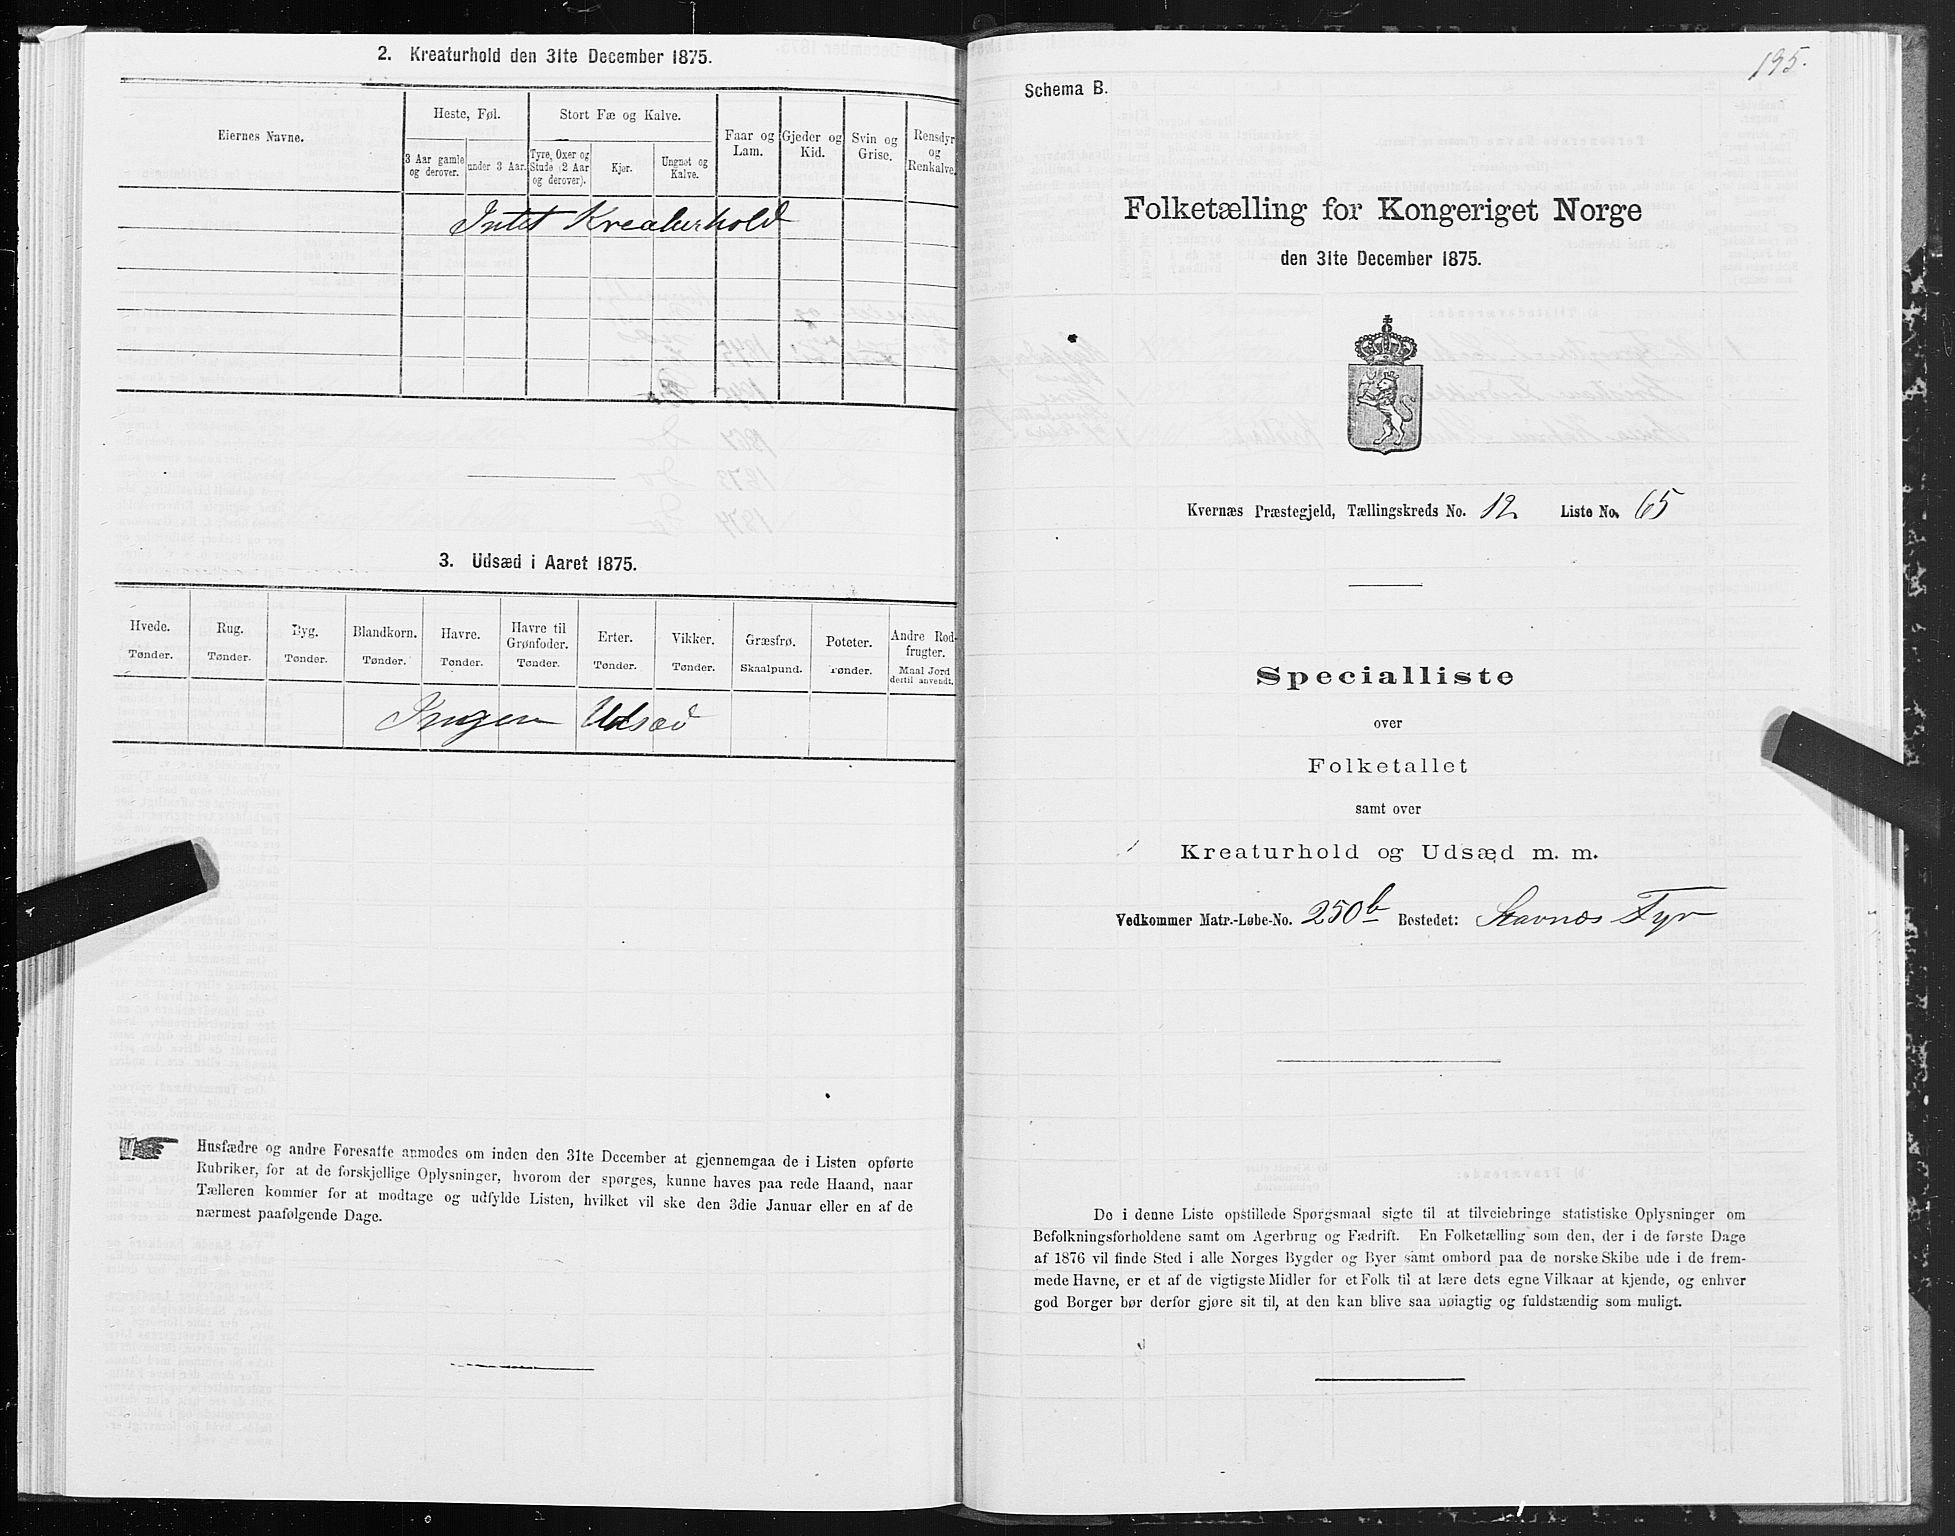 2. Kreaturhold den 31te December 1875.
Eiernes Navne.
Heste, Føl.
Stort Fæ og Kalve.
Faar og Lam.
Gjeder og Kid.
Svin og Grise.
Rensdyr og Renkalve.
3 Aar gamle og derover.
under 3 Aar.
Tyre, Oxer og Stude (2 Aar og derover).
Kjør.
Ungnøt og Kalve.
Intet Kreaturhold
3. Udsæd i Aaret 1875.
Hvede. Tønder.
Rug. Tønder.
Byg. Tønder.
Blandkorn. Tønder.
Havre. Tønder.
Havre til Grønfoder. Tønder.
Erter. Tønder.
Vikker. Tønder.
Græsfrø. Skaalpund.
Poteter. Tønder.
Andre Rodfrugter. Maal Jord dertil anvendt.
Ingen Udsæd
Husfædre og andre Foresatte anmodes om inden den 31te December at gjennemgaa de i Listen opførte
Rubriker, for at de forskjellige Oplysninger, hvorom der spørges, kunne haves paa rede Haand, naar
Tælleren kommer for at modtage og udfylde Listen, hvilket vil ske den 3die Januar eller en af de
nærmest paafølgende Dage.
195.
Schema B.
Folketælling for Kongeriget Norge
den 31te December 1875.
Kvernæs Præstegjeld, Tællingskreds No. 12 Liste No. 65
Specialliste
over
Folketallet
samt over
Kreaturhold og Udsæd m. m.
Vedkommer Matr.-Løbe-No. 250b Bostedet: Stavnæs Fyr
De i denne Liste opstillede Spørgsmaal sigte til at tilveiebringe statistiske Oplysninger om
Befolkningsforholdene samt om Agerbrug og Fædrift. En Folketælling som den, der i de første Dage
af 1876 vil finde Sted i alle Norges Bygder og Byer samt ombord paa de norske Skibe ude i de frem-
mede Havne, er et af de vigtigste Midler for et Folk til at lære dets egne Vilkaar at kjende, og enhver
god Borger bør derfor gjøre sit til, at den kan blive saa nøiagtig og fuldstændig som muligt.